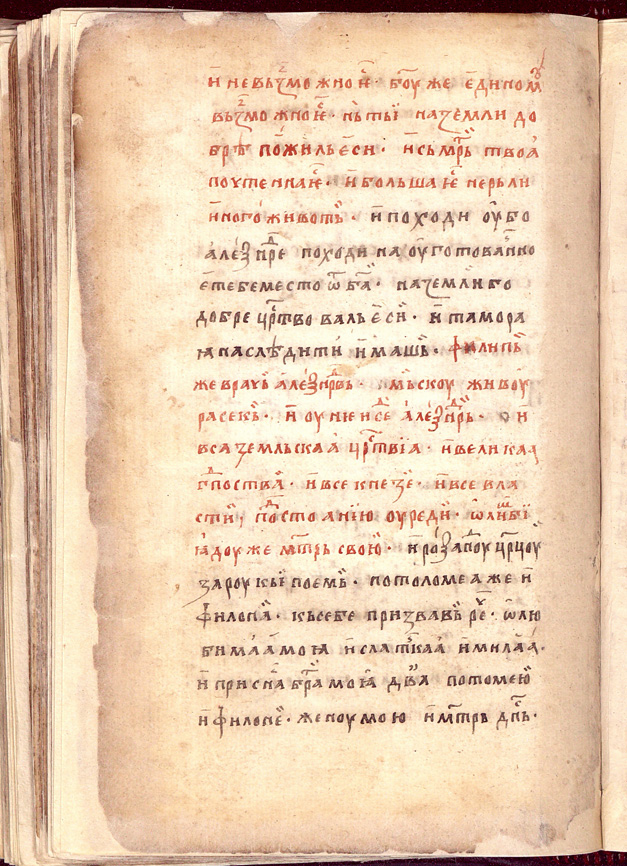 и невьꙁможно ѥ· боу же единомꙋ
вьꙁможно ѥ· нь ты на ꙁемли до
брѣ пожиль еси· и сьмрть твоа
поутеннаꙗ· и большаꙗ нерьли
иного животь· и походи оубо
алеѯнⷣре походи на оуготованно
ѥ тебе место ѿ ба· на ꙁемли бо
добре црⷭтвоваль еси· и тамо ра
ꙗ наслѣдити имашь· филипь
же врачь алеѯнⷣрь· мьскоу живоу
расекь· и оу ню и се алеѯнⷣрь· и
вса ꙁемльскаа црⷭтвїа· и великаа
гпⷭоства· и все кнеꙁе· и все вла
сти, по достоанїю оуреди· ѡлимбї
ꙗдоу же мтрь свою· и роѯандоу црцоу
ꙁа роукы поемь· птоломеа же и
филона· кь себе приꙁвавь рⷱе· ѡ лю
бимаа моꙗ и слаткаа и милаа·
и приснаа братⷭа моꙗ два потомею
и филоне· женоу мою и мтрь днⷭь·